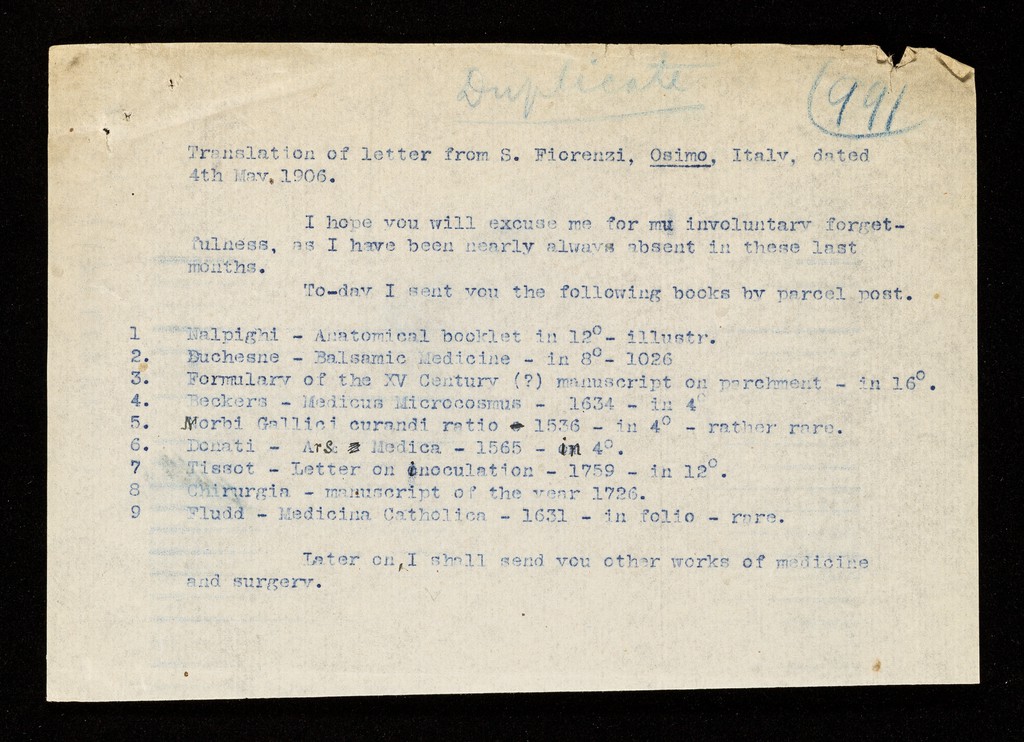 Duplicate
991
Translation of letter from S. Fiorenzi, Osimo, Italy, dated
4th May, 1906.
I hope you will excuse me for mu involuntary forget-
fulness, as I have been nearly always absent in these last
months.
To-day I sent you the following books by parcel post.
1 Malpighi - Anatomical booklet in 12º- illustr.
2. Duchesne - Balsamic Medicine - in 8º- 1026
3. Formulary of the XV Century (?) manuscript on parchment - in 16º.
4. Beckers - Medicus Microcosmus - 1634 - in 4º
5. Morbi Gallici curandi ratio - 1536 - in 4º - rather rare.
6. Donati - Ars Medica - 1565 - in 4º.
7 Tissot - Letter on inoculation - 1759 - in 12º.
8 Chirurgia - manuscript of the year 1726.
9 Fludd - Medicina Catholica - 1631 - in folio - rare.
Later on, I shall send you other works of medicine
and surgery.